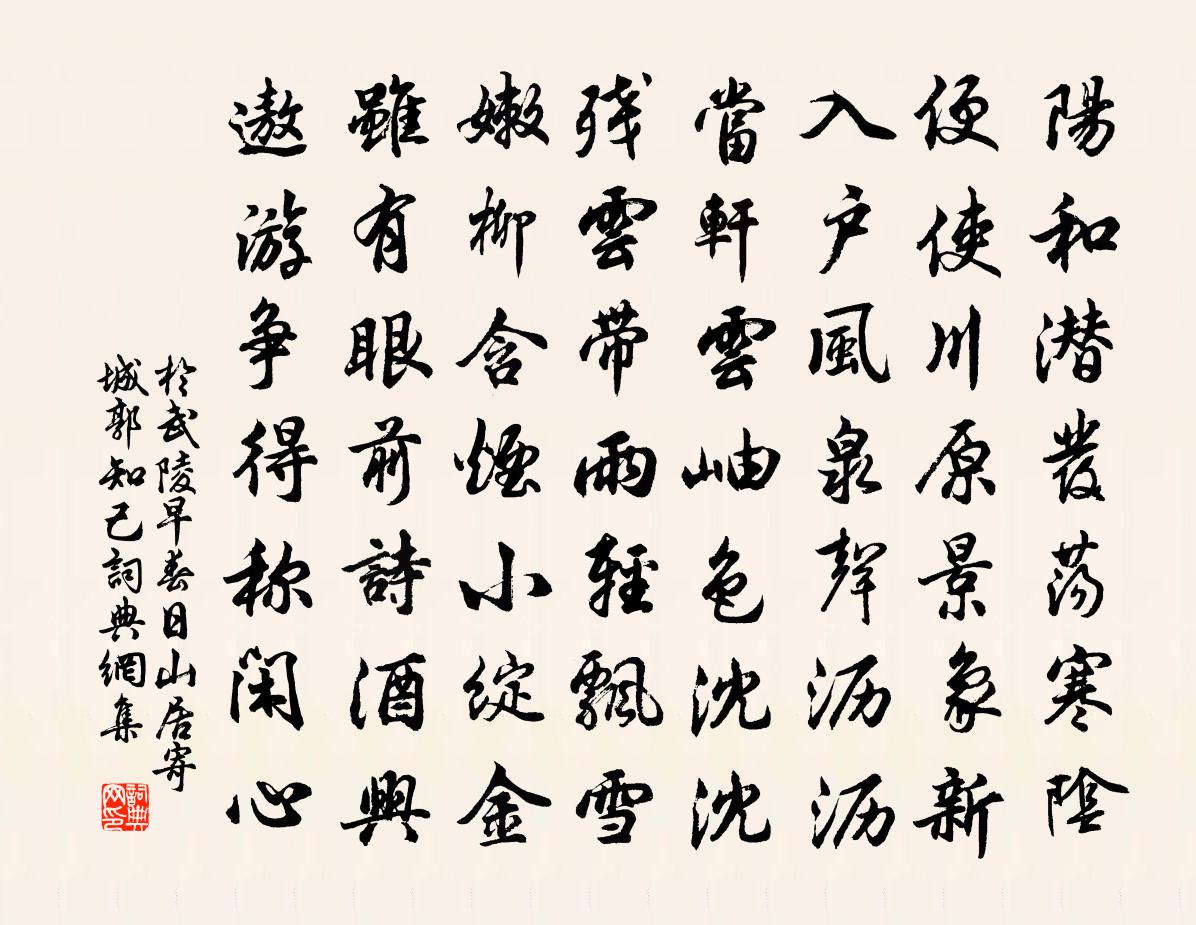 陽和潛發蕩寒陰
便使川原景象新
入户風泉聲沥沥
當軒雲岫色沈沈
殘雲带雨輕飄雪
嫩柳含煙小綻金
雖有眼前詩酒興
遨游争得称閑心
於武陵早春日山居寄
城郭知己詞典網集
詞典网印